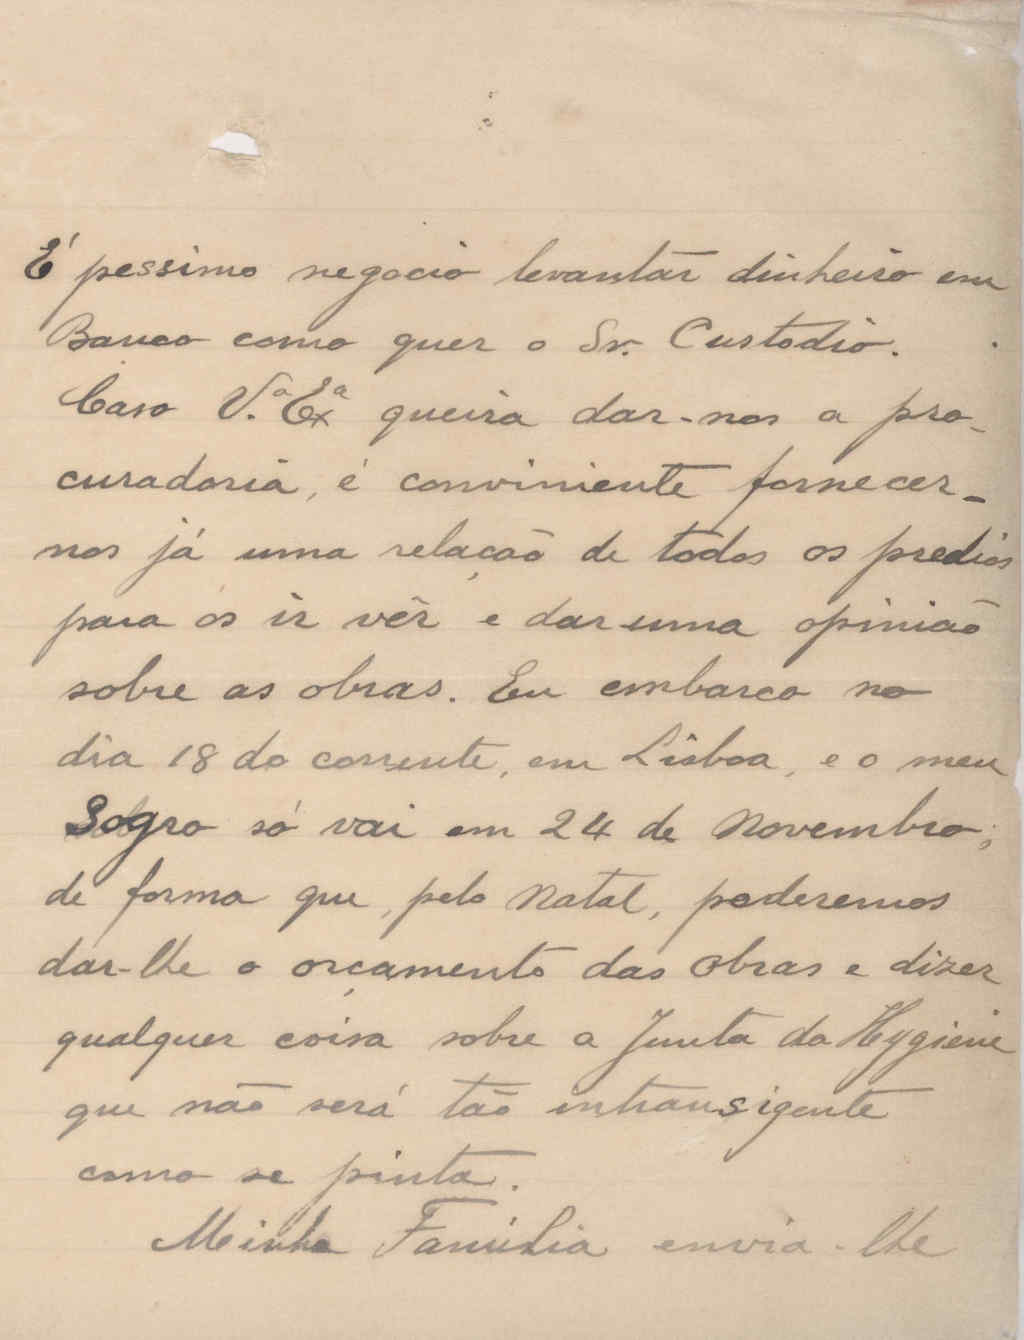 É pessimo negocio levantar dinheiro em
Banco como quer o Sr. Custodio.
Caso V.ª Exª queira dar-nos a pro-
curadoria, é conviniente fornecer-
nos já uma relação de todos os predios
para os ir vêr e dar uma opinião
sobre as obras. Eu embarco no
dia 18 do corrente, em Lisboa, e o meu
Sogro só vai em 24 de Novembro;
de forma que, pelo Natal, poderemos
dar-lhe o orçamento das Obras e dizer
qualquer coisa sobre a Junta da Hygiene
que não será tão intransigente
como se pinta.
Minha Familia envia-lhe